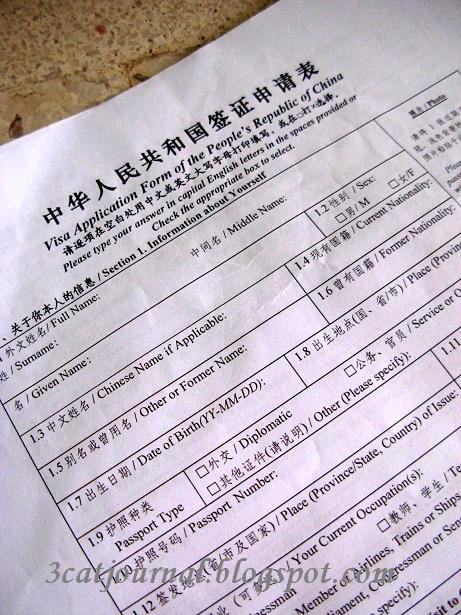 中华人民共和国签证申请表
Visa Application Form of the People's Republic of China
请逐项在空白处用中文或英文大写字母打印填写，或在□打×选择。
Please type your answer in capital English letters in the spaces provided or
Check the appropriate box to select.
、关于你本人的信息 / Section 1. Information about Yourself
外文姓名 / Full Name:
姓 / Surname:
中间名 / Middle Name:
1.2 性别 / Sex:
□男/M □女/F
照片 / Photo
名 / Given Name:
1.4 现有国籍 / Current Nationality:
1.3 中文姓名 / Chinese Name if Applicable:
1.6 曾有国籍 / Former Nationality:
1.5 别名或曾用名 / Other or Former Name:
1.8 出生地点(国、省/市) / Place (Province
1.7 出生日期 / Date of Birth(YY-MM-DD):
1.9 护照种类
Passport Type
□外交 / Diplomatic
□公务、官员 / Service or O
□其他证件(请说明) / Other (Please specify):
护照号码 / Passport Number:
1.11
1.12 签发地(省/市及国家) / Place (Province/State, Country) of Issue:
业 (可 Your Current Occupation(s):
□教师、学生 / Te
Member of Airlines, Trains or Ships
Congressman or Senator
(Please specify):
3catjournal.blogspot.com